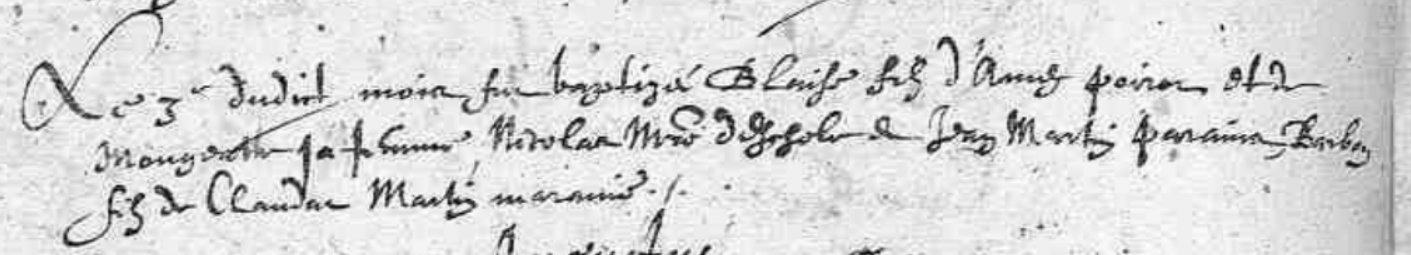 Le 3e dudict mois fut baptizé Blaise filz d'Anne poirot et de
Mongeotte sa femme, Nicolas Mre d'eschole et Jean Martin parains, Barbon
filz de Claudat Martin maraine